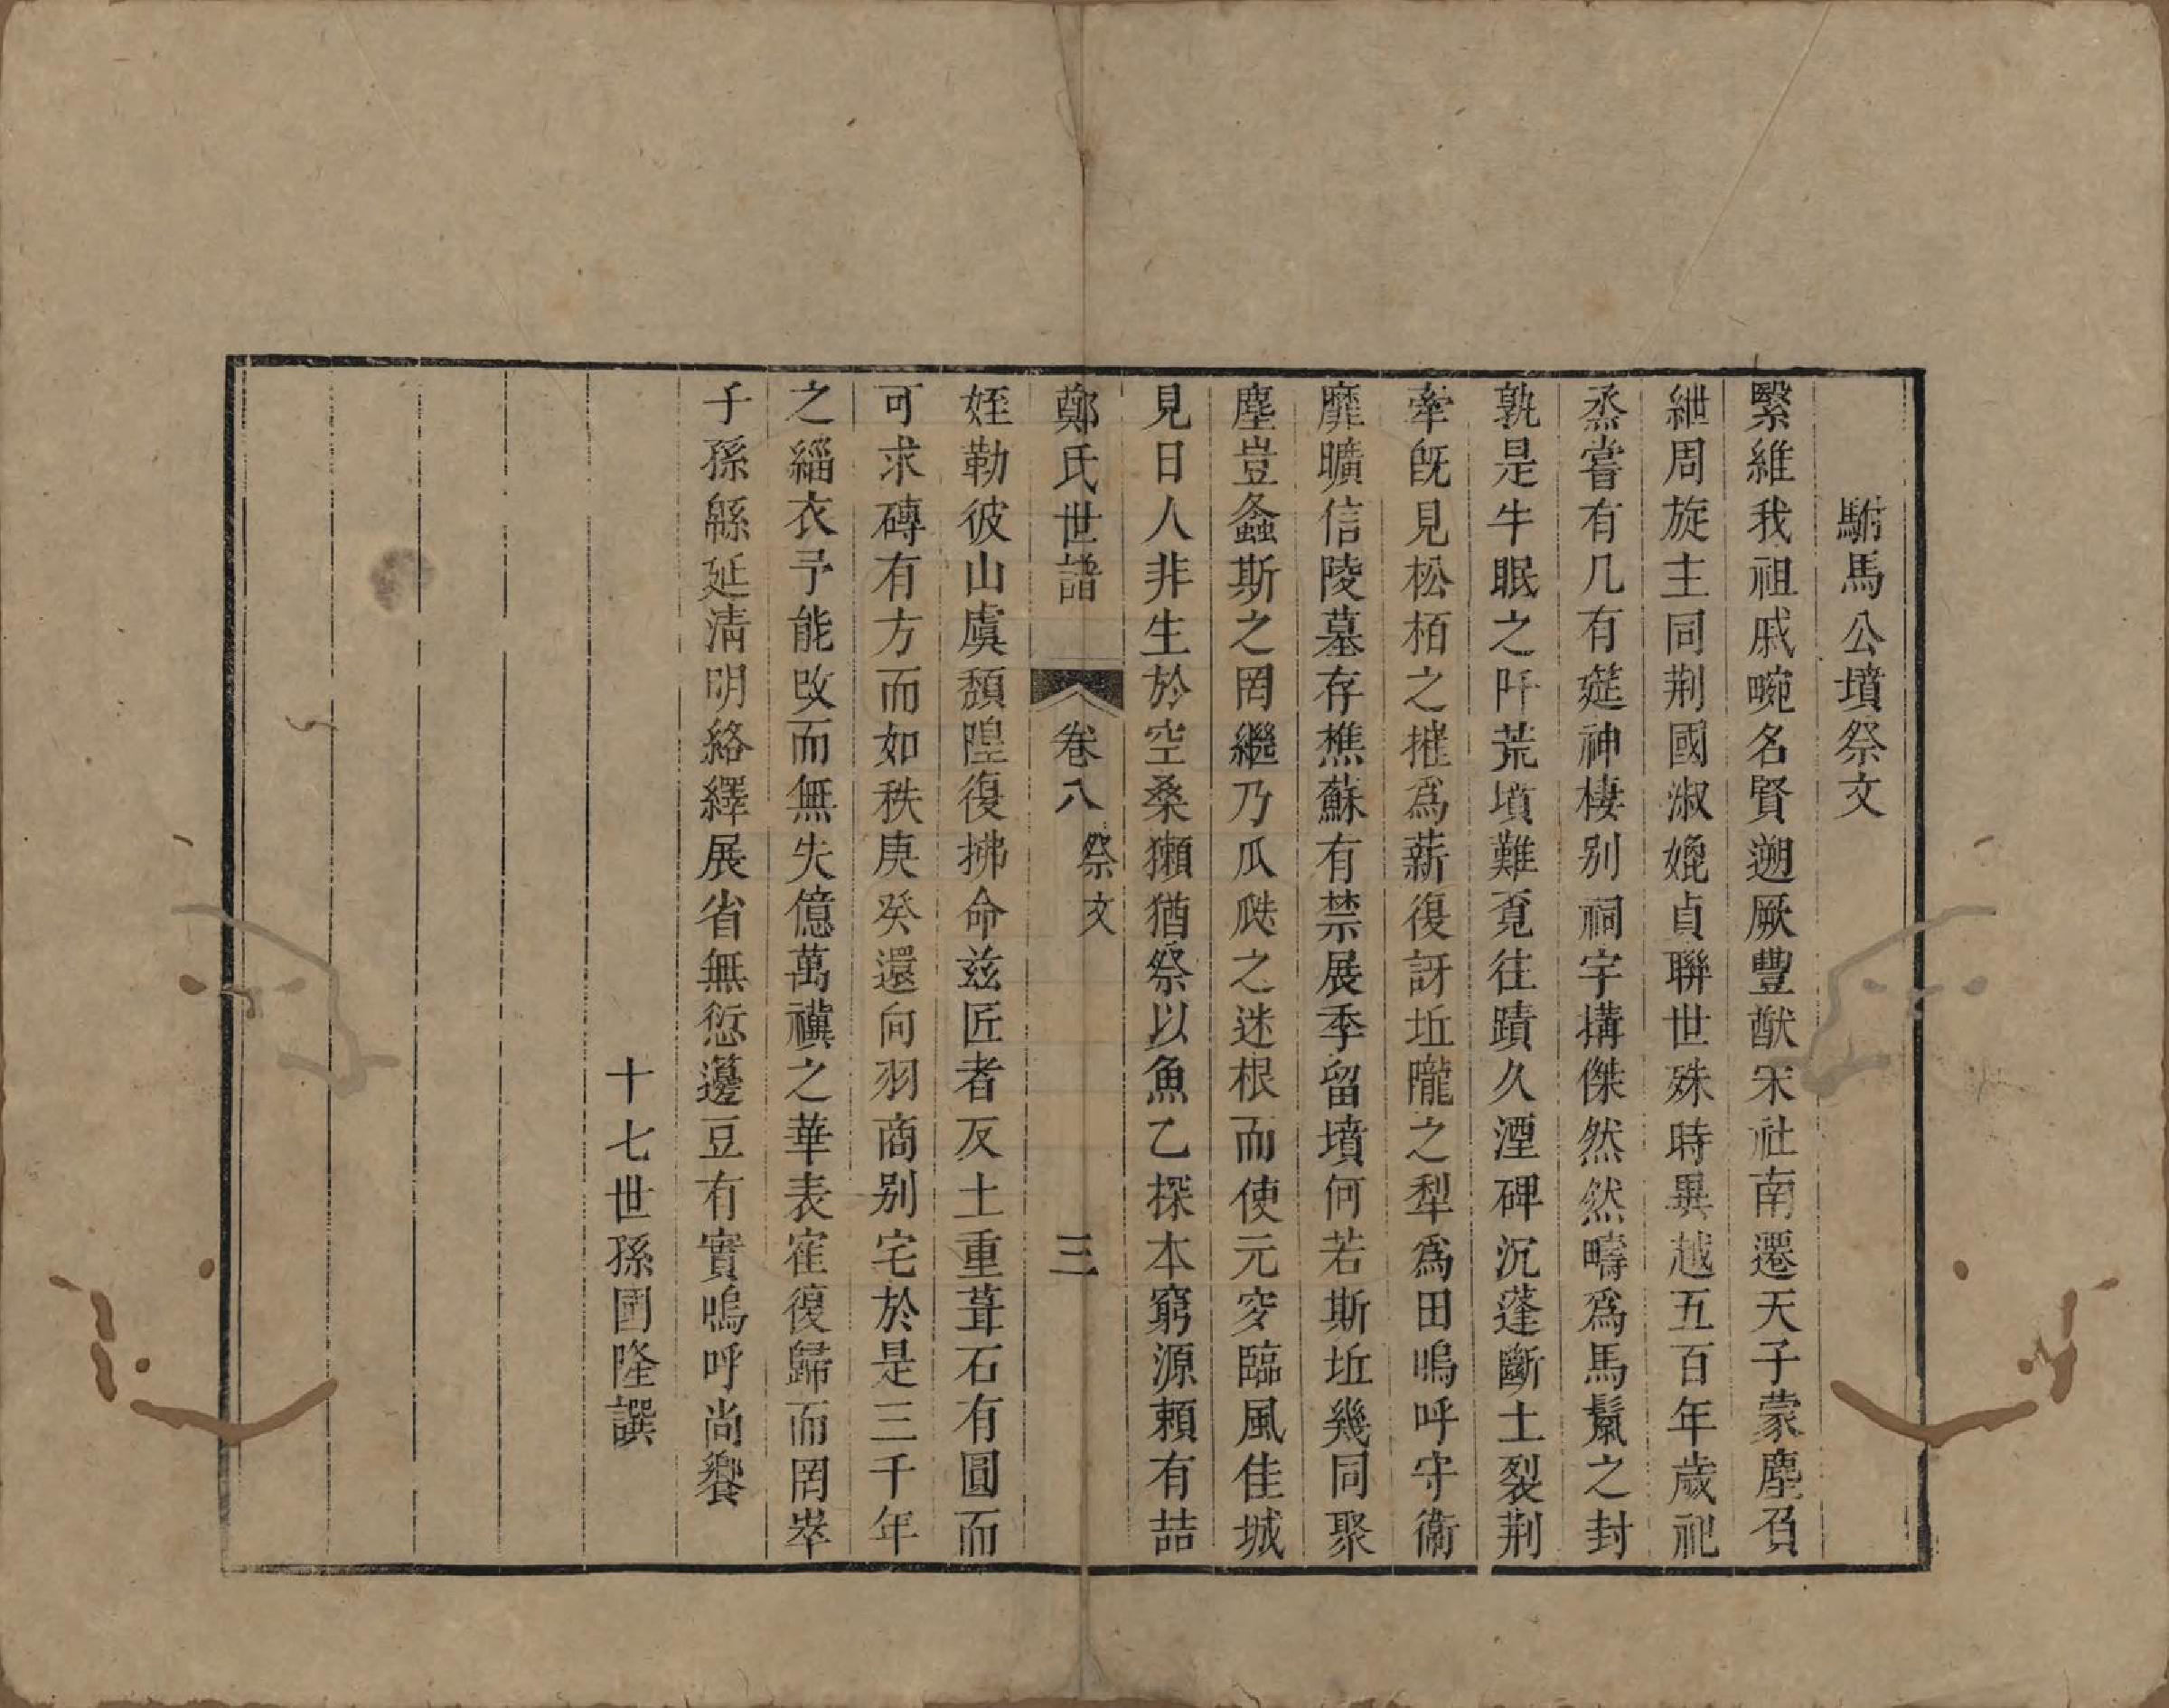 駙馬公墳祭文
繄維我祖戚畹名賢遡厥豐猷宋社南遷天子蒙塵召
紲周旋主同荆國淑婉貞聯世殊時異越五百年歲祀
烝嘗有几有筵神棲别祠宇搆傑然然疇爲馬鬛之封
孰是牛眠之阡荒墳難覓往蹟久湮碑沉蓬斷土裂荆
牽旣見松栢之摧爲薪復訝坵隴之犁爲田嗚呼守衞
靡曠信陵墓存樵蘇有禁展季留墳何若斯坵幾同聚
塵豈螽斯之罔繼乃瓜瓞之迷根而使元穸臨風佳城
見日人非生於空桑獺猶祭以魚乙探本窮源頼有喆
鄭氏世譜 卷八 祭文 三
姪勒彼山虞頽隍復拂命兹匠者反土重葺石有圓而
可求磚有方而如秩庚癸還向羽商别宅於是三千年
之緇衣予能改而無失億萬禩之華表寉復歸而罔崒
子孫緜延清明絡繹展省無愆籩豆有實嗚呼尚饗
十七世孫國隆譔